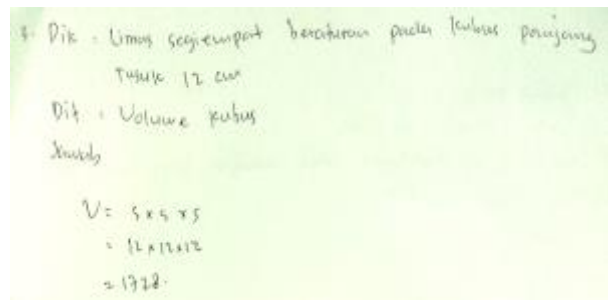 3. Dik : Limas segiempat beraturan pada kubus panjang
rusuk 12 cm
Dit : Volume kubus
Jawab
V = s x s x s
= 12 x 12 x 12
= 1728.